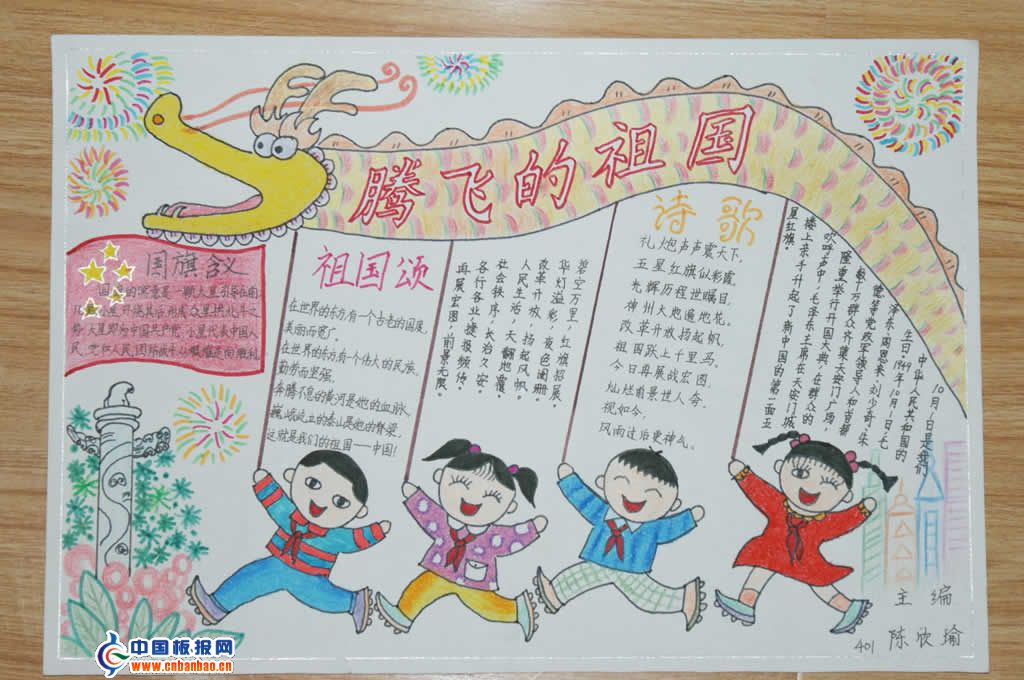 腾飞的祖国
国旗含义
祖国颂
在世界的东方有一个古老的国度,
美丽而宽广。
在世界的东方有一个伟大的民族,
勤劳而坚强。
奔腾不息的黄河是她的血脉,
巍峨屹立的泰山是她的脊梁,
这就是我们的祖国——中国!
碧空万里,红旗招展。
华灯溢彩,夜色阑珊。
改革开放,扬起风帆。
人民生活,天翻地覆。
社会秩序,长治久安。
各行各业,捷报频传。
再展宏图,前景无限。
诗歌
礼炮声声震天下,
五星红旗似彩霞。
光辉历程世瞩目,
神州大地遍地花。
改革开放扬起帆,
祖国跃上千里马。
今日再展战宏图,
灿烂前景世人夸。
视如今,
风雨过后更神么。
10月1日是我们
中华人民共和国的
生日,1949年10月1日,毛
泽东、周恩来、刘少奇、朱
德等党政军领导人和首都
数十万群众齐集天安门广场,
隆重举行开国大典,在群众的
欢呼声中,毛泽东主席在天安门城
楼上亲手升起了新中国的第一面五
星红旗。
主编
401 陈欣瑜
中国板报网
www.cnbanbao.cn